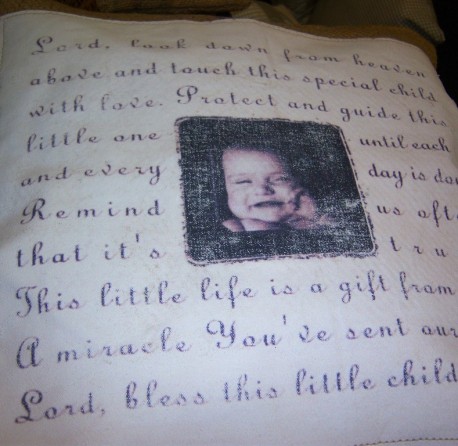 Lord, look down from heaven
above and touch this special child
with love. Protect and guide this
little one until each
and every day is don
Remind us oft
that it's tru
This little life is a gift from
A miracle You've sent our
Lord, bless this little child